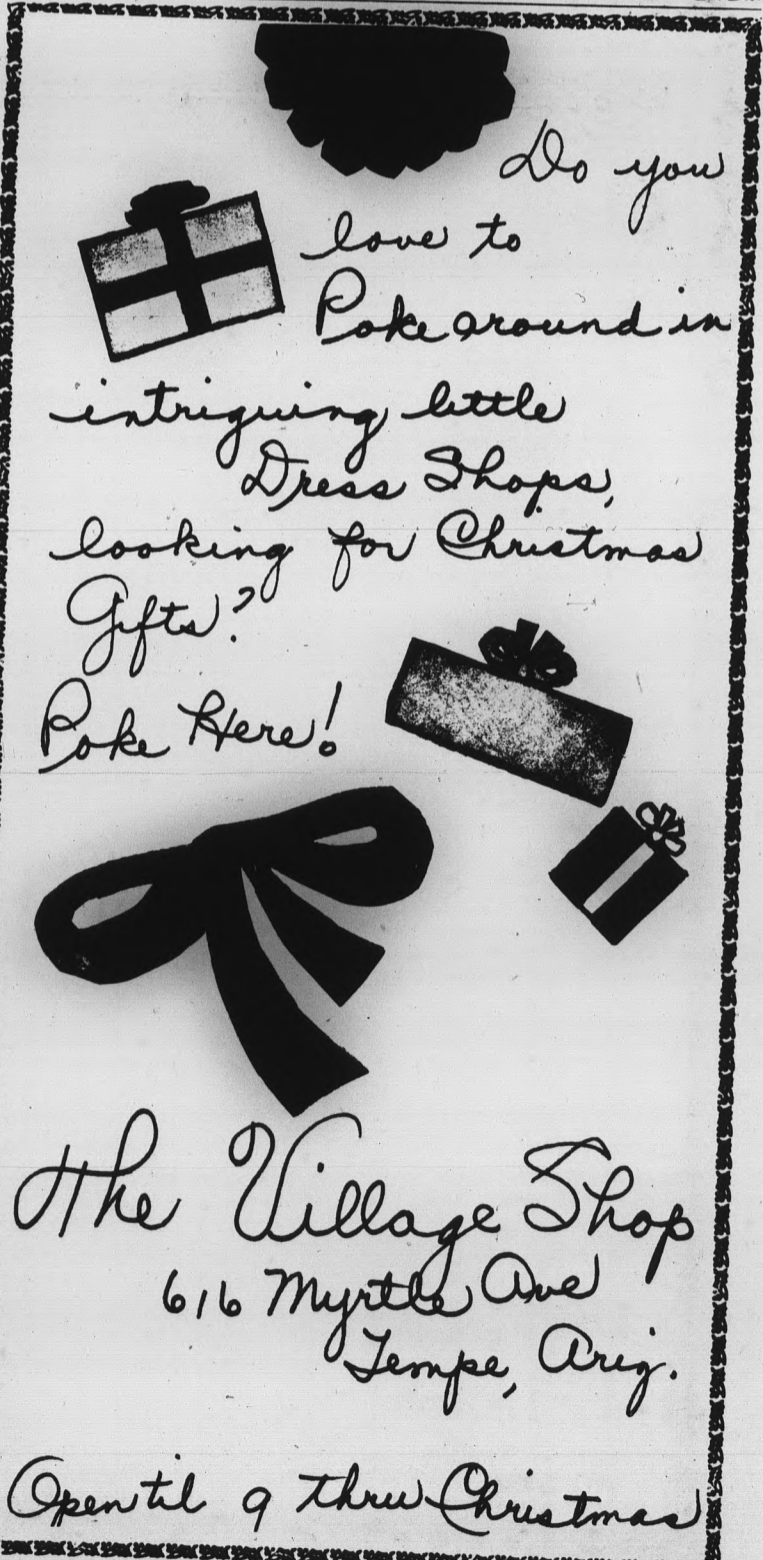 Do you
love to
Poke around in
intriguing little
Dress Shops,
looking for Christmas
Gifts?
Poke Here!
The Village Shop
616 Myrtle Ave
Tempe, Ariz.
Open til 9 thru Christmas